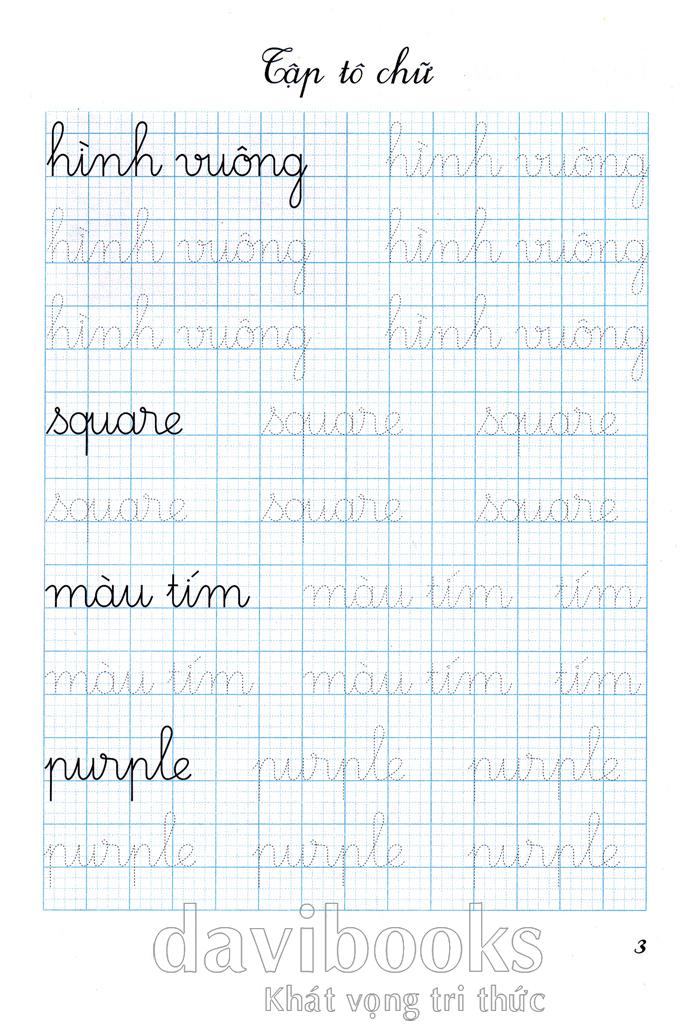 Tập tô chữ
hình vuông hình vuông
hình vuông hình vuông
hình vuông hình vuông
square square square
square square square
màu tím màu tím tím
màu tím màu tím tím
purple purple purple
purple purple purple
davibooks
Khát vọng tri thức
3